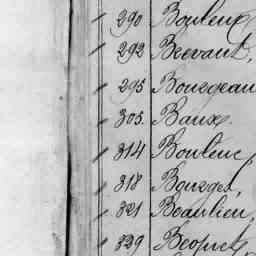 290 Bouleux
292 Brevant,
295 Bourgeau
305. Baux.
314 Bouleuc,
318 Bourget,
321 Beaulieu,
329